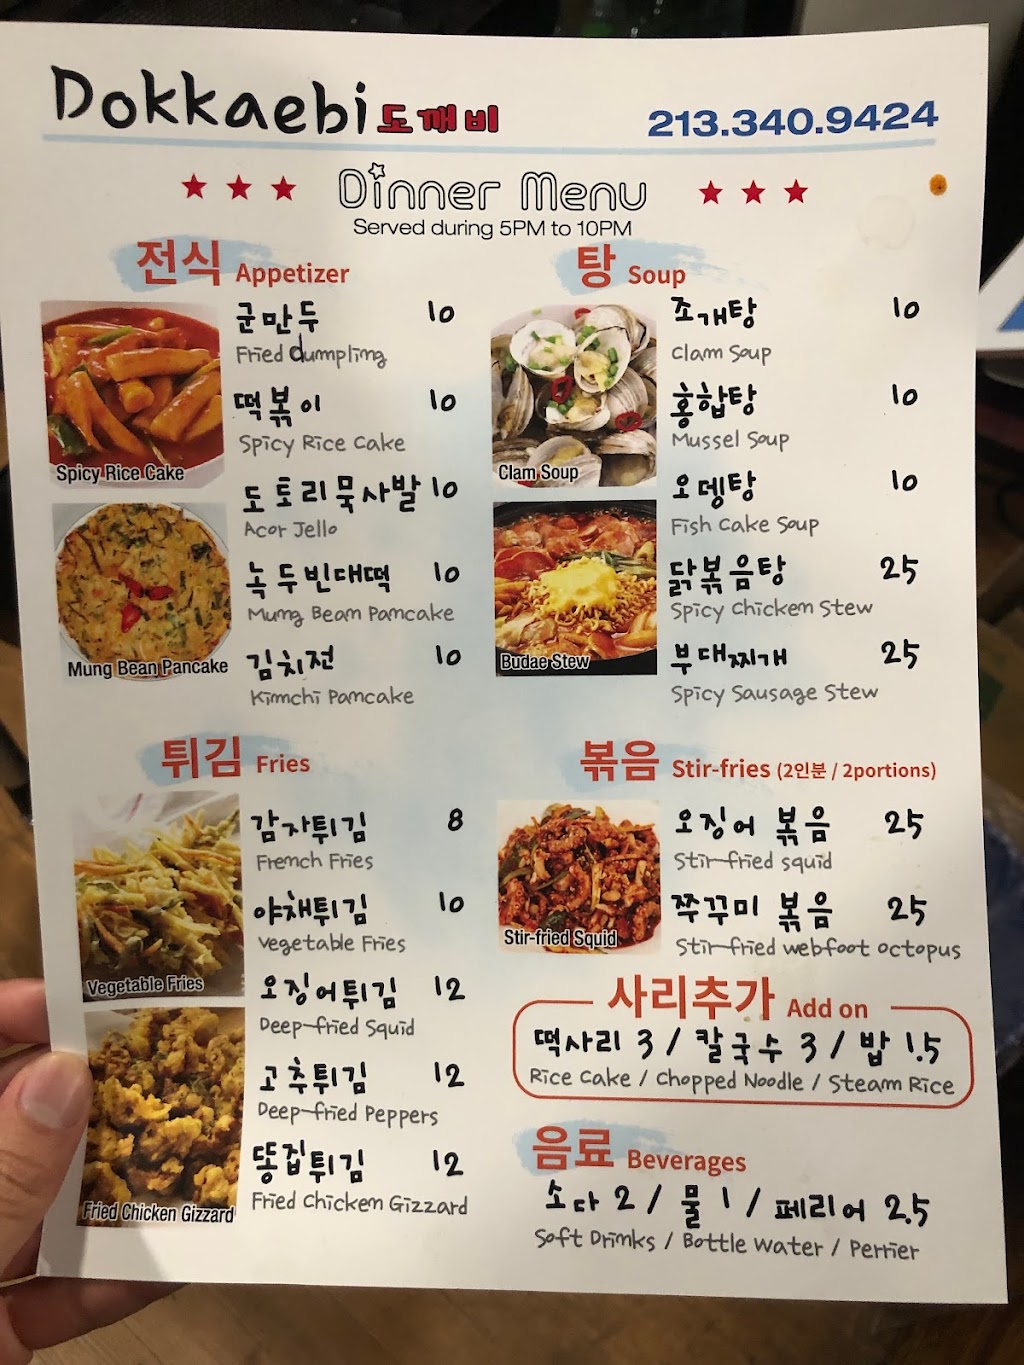 Dokkaebi 도깨비
213.340.9424
Dinner Menu
Served during 5PM to 10PM
전식 Appetizer
Spicy Rice Cake
Mung Bean Pancake
군만두 10
Fried dumpling
떡볶이 10
Spicy Rice Cake
도토리묵사발 10
Acor Jello
녹두빈대떡 10
Mung Bean Pancake
김치전 10
Kimchi Pancake
탕 Soup
Clam Soup
Budae Stew
조개탕 10
Clam Soup
홍합탕 10
Mussel Soup
오뎅탕 10
Fish Cake Soup
닭볶음탕 25
Spicy Chicken Stew
부대찌개 25
Spicy Sausage Stew
튀김 Fries
Vegetable Fries
Fried Chicken Gizzard
감자튀김 8
French Fries
야채튀김 10
Vegetable Fries
오징어튀김 12
Deep-fried Squid
고추튀김 12
Deep-fried Peppers
똥집튀김 12
Fried Chicken Gizzard
볶음 Stir-fries (2인분 / 2portions)
Stir-fried Squid
오징어 볶음 25
Stir-fried squid
쭈꾸미 볶음 25
Stir-fried webfoot octopus
사리추가 Add on
떡사리 3 / 칼국수 3 / 밥 1.5
Rice Cake / Chopped Noodle / Steam Rice
음료 Beverages
소다 2 / 물 1 / 페리어 2.5
Soft Drinks / Bottle Water / Perrier